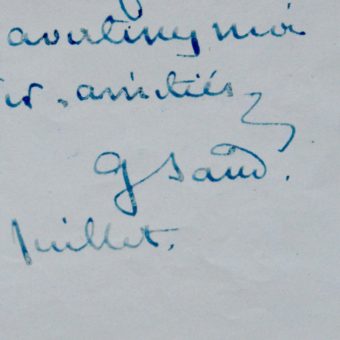 avertissez moi
amitiés
G Sand.
juillet.